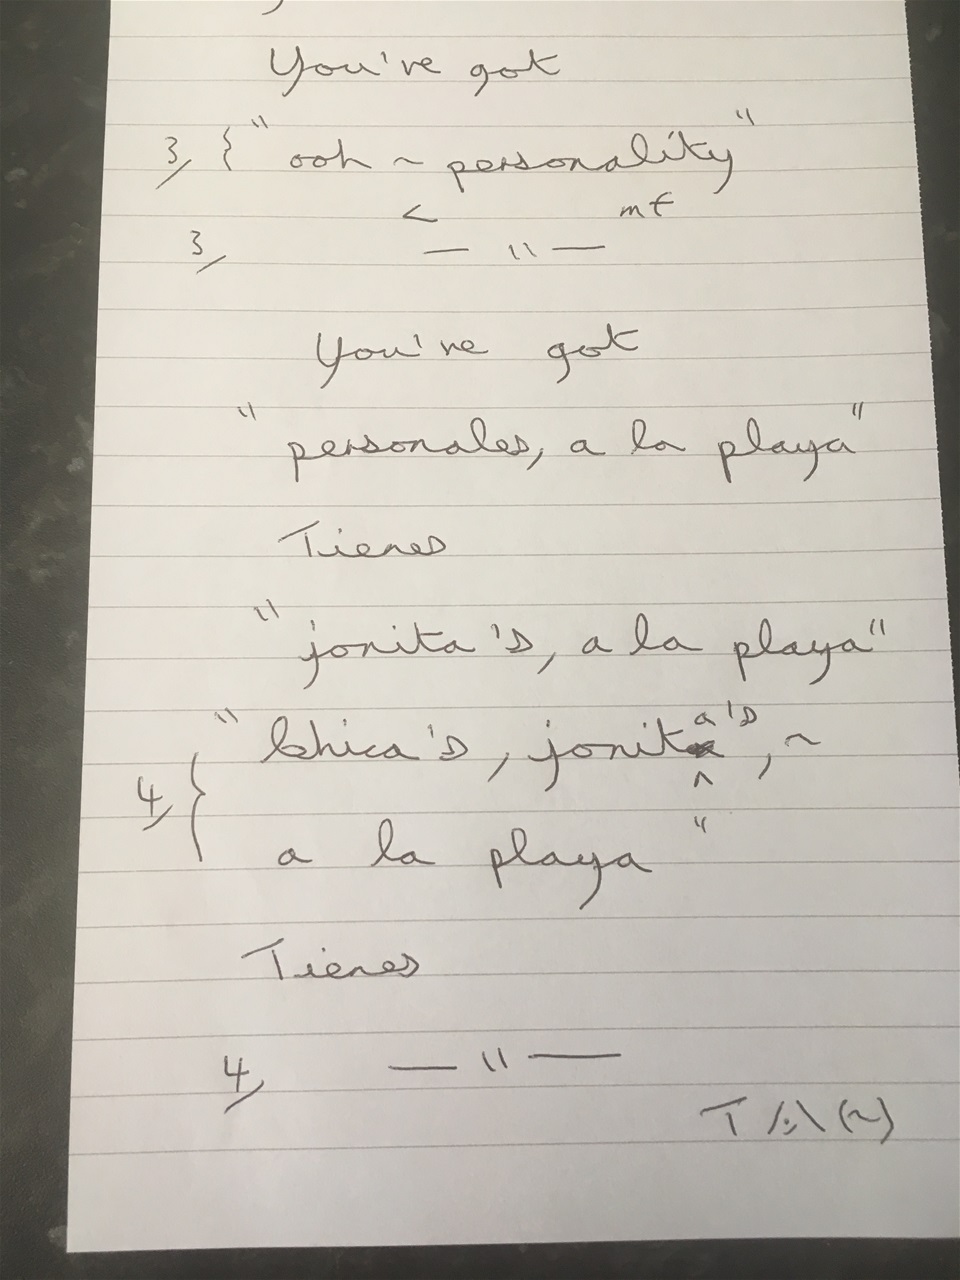 You've got
3, { "ooh ~ personality"
< mf
3, — " —
You've got
"personales, a la playa"
Tienes
"jonita's, a la playa"
"Chica's, jonita's, ~
4, {
a la playa"
Tienes
4, — " —